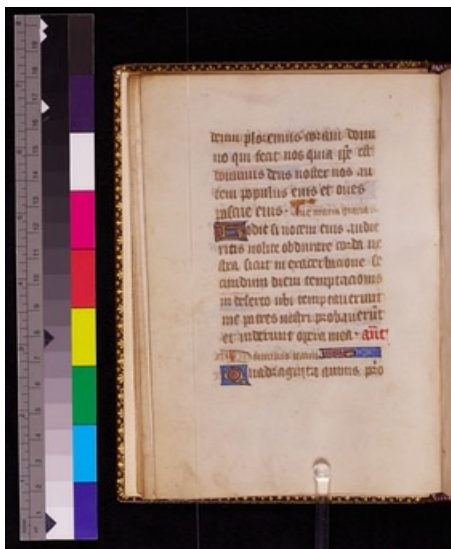 deum ploremus coram domi
no qui fecit nos quia ip̄e est
dominus deus noster nos au
tem populus eius et oues
pascue eius. Aue maria gracia
Hodie si uocem eius audie
ritis nolite obdurare corda ue
stra sicut in exacerbacione se
cundum diem temptacionis
in deserto ubi temptauerunt
me patres uestri probauerūt
et uiderunt opera mea. añt
Dominus tecum
Quadraginta annis pro